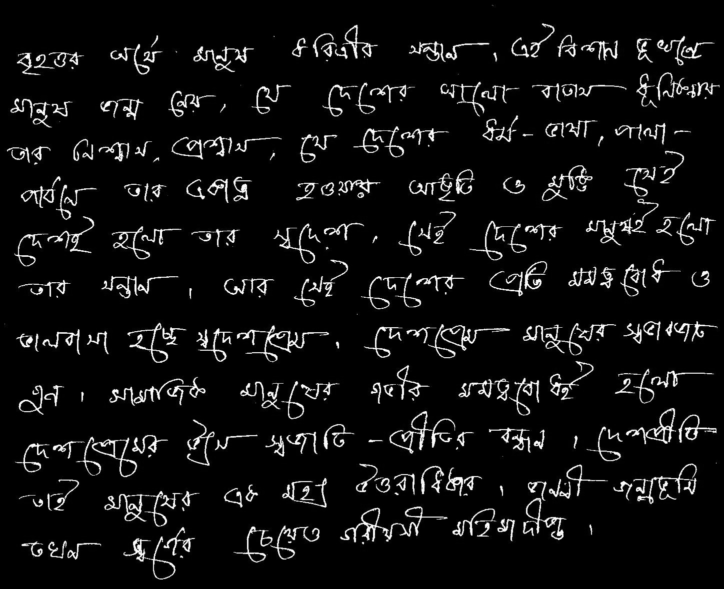 বৃহত্তর অর্থে মানুষ ধরিত্রীর সন্তান, এই বিশাল ভূখণ্ডে
মানুষ জন্ম নেয়, যে দেশের আলো বাতাস ধূলিকণায়
তার নিশ্বাস, প্রশ্বাস, যে দেশের ধর্ম-ভাষা, পালা-
পার্বনে তার একাত্ম হওয়ার আকুতি ও মুক্তি সেই
দেশই হলো তার স্বদেশ, সেই দেশের মানুষই হলো
তার সন্তান, আর সেই দেশের প্রতি মমত্ববোধ ও
ভালবাসা হচ্ছে স্বদেশপ্রেম, দেশপ্রেম মানুষের স্বভাবজাত
গুন। সামাজিক মানুষের গভীর মমত্ববোধই হলো
দেশপ্রেমের উৎস স্বজাতি-প্রীতির বন্ধন। দেশপ্রীতি
তাই মানুষের এক মহৎ উত্তরাধিকার, জননী জন্মভূমি
তখন স্বর্গের চেয়েও গরীয়সী মহিমাদীপ্ত।